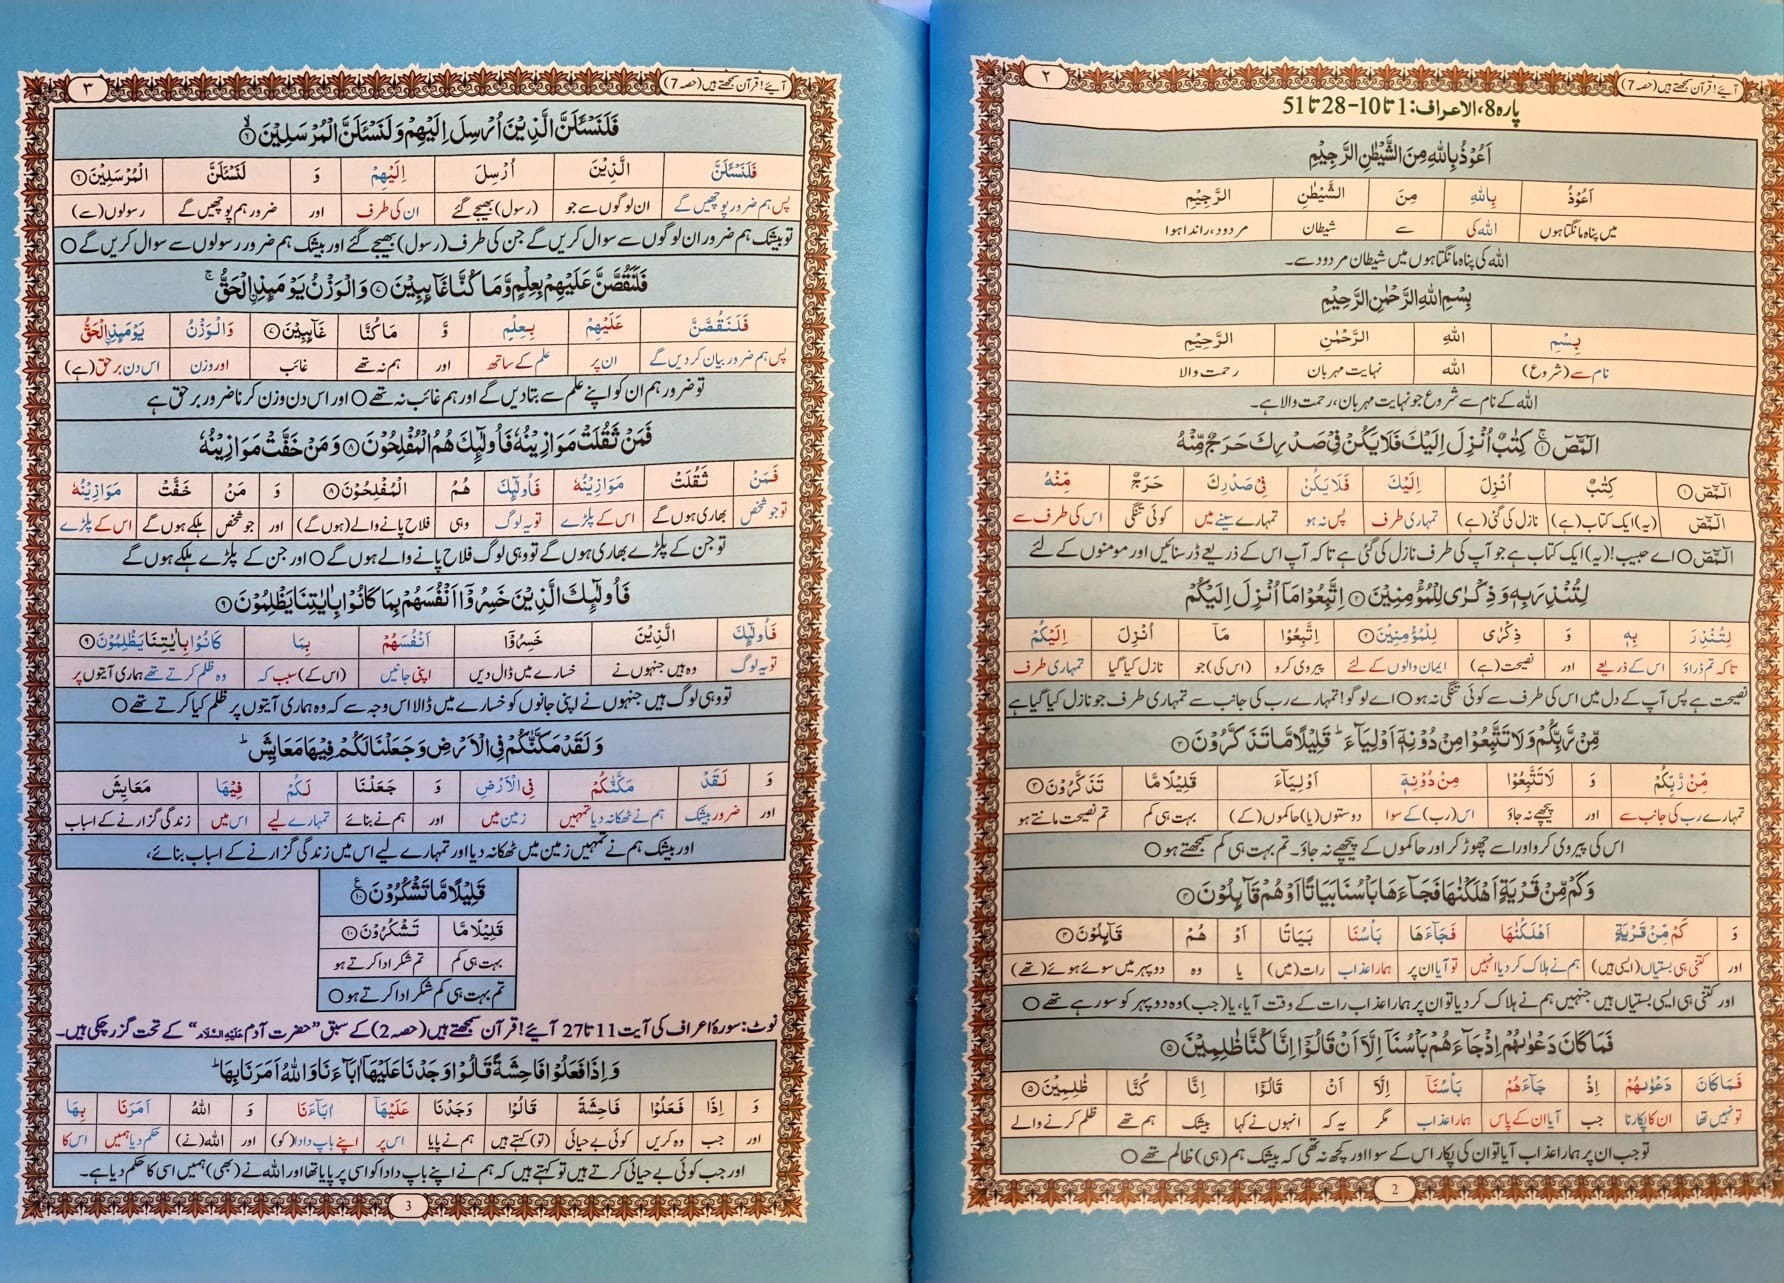 آیئے! قرآن سمجھتے ہیں (حصہ 7)
۲
پارہ 8، الاعراف: 1 تا 10 – 28 تا 51
اَعُوْذُ بِاللّٰهِ مِنَ الشَّيْطٰنِ الرَّجِيْمِ
اَعُوْذُ بِاللّٰهِ مِنَ الشَّيْطٰنِ الرَّجِيْمِ
میں پناہ مانگتا ہوں اللہ کی سے شیطان مردود، راندا ہوا
اللہ کی پناہ مانگتا ہوں میں شیطان مردود سے۔
بِسْمِ اللّٰهِ الرَّحْمٰنِ الرَّحِيْمِ
بِسْمِ اللّٰهِ الرَّحْمٰنِ الرَّحِيْمِ
نام سے (شروع) اللہ نہایت مہربان رحمت والا
اللہ کے نام سے شروع جو نہایت مہربان، رحمت والا ہے۔
الٓمّٓصٓ ۚ‏﴿۱﴾ كِتٰبٌ اُنْزِلَ اِلَيْكَ فَلَا يَكُنْ فِيْ صَدْرِكَ حَرَجٌ مِّنْهُ
الٓمّٓصٓ ﴿۱﴾ كِتٰبٌ اُنْزِلَ اِلَيْكَ فَلَا يَكُنْ فِيْ صَدْرِكَ حَرَجٌ مِّنْهُ
الٓمّٓصٓ (یہ) ایک کتاب (ہے) نازل کی گئی (ہے) تمہاری طرف پس نہ ہو تمہارے سینے میں کوئی تنگی اس کی طرف سے
الٓمّٓصٓ ○ اے حبیب! (یہ) ایک کتاب ہے جو آپ کی طرف نازل کی گئی ہے تاکہ آپ اس کے ذریعے ڈر سنائیں اور مومنوں کے لئے
لِتُنْذِرَ بِهٖ وَ ذِكْرٰى لِلْمُؤْمِنِيْنَ ﴿۲﴾ اِتَّبِعُوْا مَاۤ اُنْزِلَ اِلَيْكُمْ
لِتُنْذِرَ بِهٖ وَ ذِكْرٰى لِلْمُؤْمِنِيْنَ ﴿۲﴾ اِتَّبِعُوْا مَاۤ اُنْزِلَ اِلَيْكُمْ
تاکہ تم ڈراؤ اس کے ذریعے اور نصیحت (ہے) ایمان والوں کے لئے پیروی کرو (اس کی) جو نازل کیا گیا تمہاری طرف
نصیحت ہے پس آپ کے دل میں اس کی طرف سے کوئی تنگی نہ ہو ○ اے لوگو! تمہارے رب کی جانب سے تمہاری طرف جو نازل کیا گیا ہے
مِّنْ رَّبِّكُمْ وَ لَا تَتَّبِعُوْا مِنْ دُوْنِهٖۤ اَوْلِيَآءَ ؕ قَلِيْلًا مَّا تَذَكَّرُوْنَ ﴿۳﴾
مِّنْ رَّبِّكُمْ وَ لَا تَتَّبِعُوْا مِنْ دُوْنِهٖۤ اَوْلِيَآءَ قَلِيْلًا مَّا تَذَكَّرُوْنَ ﴿۳﴾
تمہارے رب کی جانب سے اور پیچھے نہ جاؤ اس (رب) کے سوا دوستوں (یا) حاکموں (کے) بہت ہی کم تم نصیحت مانتے ہو
اس کی پیروی کرو اور اسے چھوڑ کر اور حاکموں کے پیچھے نہ جاؤ۔ تم بہت ہی کم سمجھتے ہو ○
وَ كَمْ مِّنْ قَرْيَةٍ اَهْلَكْنٰهَا فَجَآءَهَا بَاْسُنَا بَيَاتًا اَوْ هُمْ قَآىِٕلُوْنَ ﴿۴﴾
وَ كَمْ مِّنْ قَرْيَةٍ اَهْلَكْنٰهَا فَجَآءَهَا بَاْسُنَا بَيَاتًا اَوْ هُمْ قَآىِٕلُوْنَ ﴿۴﴾
اور کتنی ہی بستیاں (ایسی ہیں) ہم نے ہلاک کر دیا انہیں تو آیا ان پر ہمارا عذاب رات (میں) یا وہ دوپہر میں سوئے ہوئے (تھے)
اور کتنی ہی ایسی بستیاں ہیں جنہیں ہم نے ہلاک کر دیا تو ان پر ہمارا عذاب رات کے وقت آیا، یا (جب) وہ دوپہر کو سو رہے تھے ○
فَمَا كَانَ دَعْوٰىهُمْ اِذْ جَآءَهُمْ بَاْسُنَاۤ اِلَّاۤ اَنْ قَالُوْۤا اِنَّا كُنَّا ظٰلِمِيْنَ ﴿۵﴾
فَمَا كَانَ دَعْوٰىهُمْ اِذْ جَآءَهُمْ بَاْسُنَاۤ اِلَّاۤ اَنْ قَالُوْۤا اِنَّا كُنَّا ظٰلِمِيْنَ ﴿۵﴾
تو نہیں تھا ان کا پکارنا جب آیا ان کے پاس ہمارا عذاب مگر یہ کہ انہوں نے کہا بیشک ہم تھے ظلم کرنے والے
تو جب ان پر ہمارا عذاب آیا تو ان کی پکار اس کے سوا اور کچھ نہ تھی کہ بیشک ہم (ہی) ظالم تھے ○
2
آیئے! قرآن سمجھتے ہیں (حصہ 7)
۳
فَلَنَسْـَٔلَنَّ الَّذِيْنَ اُرْسِلَ اِلَيْهِمْ وَ لَنَسْـَٔلَنَّ الْمُرْسَلِيْنَ ۙ﴿۶﴾
فَلَنَسْـَٔلَنَّ الَّذِيْنَ اُرْسِلَ اِلَيْهِمْ وَ لَنَسْـَٔلَنَّ الْمُرْسَلِيْنَ ﴿۶﴾
پس ہم ضرور پوچھیں گے ان لوگوں سے جو (رسول) بھیجے گئے ان کی طرف اور ضرور ہم پوچھیں گے رسولوں (سے)
تو بیشک ہم ضرور ان لوگوں سے سوال کریں گے جن کی طرف (رسول) بھیجے گئے اور بیشک ہم ضرور رسولوں سے سوال کریں گے ○
فَلَنَقُصَّنَّ عَلَيْهِمْ بِعِلْمٍ وَّ مَا كُنَّا غَآىِٕبِيْنَ ﴿۷﴾ وَ الْوَزْنُ يَوْمَىِٕذِ اِ۟لْحَقُّ ۚ
فَلَنَقُصَّنَّ عَلَيْهِمْ بِعِلْمٍ وَّ مَا كُنَّا غَآىِٕبِيْنَ ﴿۷﴾ وَ الْوَزْنُ يَوْمَىِٕذِ اِ۟لْحَقُّ
پس ہم ضرور بیان کر دیں گے ان پر علم کے ساتھ اور ہم نہ تھے غائب اور وزن اس دن برحق (ہے)
تو ضرور ہم ان کو اپنے علم سے بتا دیں گے اور ہم غائب نہ تھے ○ اور اس دن وزن کرنا ضرور برحق ہے
فَمَنْ ثَقُلَتْ مَوَازِيْنُهٗ فَاُولٰٓىِٕكَ هُمُ الْمُفْلِحُوْنَ ﴿۸﴾ وَ مَنْ خَفَّتْ مَوَازِيْنُهٗ
فَمَنْ ثَقُلَتْ مَوَازِيْنُهٗ فَاُولٰٓىِٕكَ هُمُ الْمُفْلِحُوْنَ ﴿۸﴾ وَ مَنْ خَفَّتْ مَوَازِيْنُهٗ
تو جو شخص بھاری ہوں گے اس کے پلڑے تو یہ لوگ وہی فلاح پانے والے (ہوں گے) اور جو شخص ہلکے ہوں گے اس کے پلڑے
تو جن کے پلڑے بھاری ہوں گے تو وہی لوگ فلاح پانے والے ہوں گے ○ اور جن کے پلڑے ہلکے ہوں گے
فَاُولٰٓىِٕكَ الَّذِيْنَ خَسِرُوْۤا اَنْفُسَهُمْ بِمَا كَانُوْا بِاٰيٰتِنَا يَظْلِمُوْنَ ﴿۹﴾
فَاُولٰٓىِٕكَ الَّذِيْنَ خَسِرُوْۤا اَنْفُسَهُمْ بِمَا كَانُوْا بِاٰيٰتِنَا يَظْلِمُوْنَ ﴿۹﴾
تو یہ لوگ وہ ہیں جنہوں نے خسارے میں ڈال دیں اپنی جانیں (اس کے) سبب کہ وہ ظلم کرتے تھے ہماری آیتوں پر
تو وہی لوگ ہیں جنہوں نے اپنی جانوں کو خسارے میں ڈالا اس وجہ سے کہ وہ ہماری آیتوں پر ظلم کیا کرتے تھے ○
وَ لَقَدْ مَكَّنّٰكُمْ فِي الْاَرْضِ وَ جَعَلْنَا لَكُمْ فِيْهَا مَعَايِشَ ؕ
وَ لَقَدْ مَكَّنّٰكُمْ فِي الْاَرْضِ وَ جَعَلْنَا لَكُمْ فِيْهَا مَعَايِشَ
اور ضرور بیشک ہم نے ٹھکانہ دیا تمہیں زمین میں اور ہم نے بنائے تمہارے لیے اس میں زندگی گزارنے کے اسباب
اور بیشک ہم نے تمہیں زمین میں ٹھکانہ دیا اور تمہارے لیے اس میں زندگی گزارنے کے اسباب بنائے،
قَلِيْلًا مَّا تَشْكُرُوْنَ ﴿۱۰﴾ ع
قَلِيْلًا مَّا تَشْكُرُوْنَ ﴿۱۰﴾
بہت ہی کم تم شکر ادا کرتے ہو
تم بہت ہی کم شکر ادا کرتے ہو ○
نوٹ: سورۂ اعراف کی آیت 11 تا 27 آیئے! قرآن سمجھتے ہیں (حصہ 2) کے سبق “حضرت آدم عَلَيْهِ السَّلَام” کے تحت گزر چکی ہیں۔
وَ اِذَا فَعَلُوْا فَاحِشَةً قَالُوْا وَجَدْنَا عَلَيْهَاۤ اٰبَآءَنَا وَ اللّٰهُ اَمَرَنَا بِهَا ؕ
وَ اِذَا فَعَلُوْا فَاحِشَةً قَالُوْا وَجَدْنَا عَلَيْهَاۤ اٰبَآءَنَا وَ اللّٰهُ اَمَرَنَا بِهَا
اور جب وہ کریں کوئی بے حیائی (تو) کہتے ہیں ہم نے پایا اس پر اپنے باپ دادا (کو) اور اللہ (نے) حکم دیا ہمیں اس کا
اور جب کوئی بے حیائی کرتے ہیں تو کہتے ہیں کہ ہم نے اپنے باپ دادا کو اسی پر پایا تھا اور اللہ نے (بھی) ہمیں اسی کا حکم دیا ہے۔
3